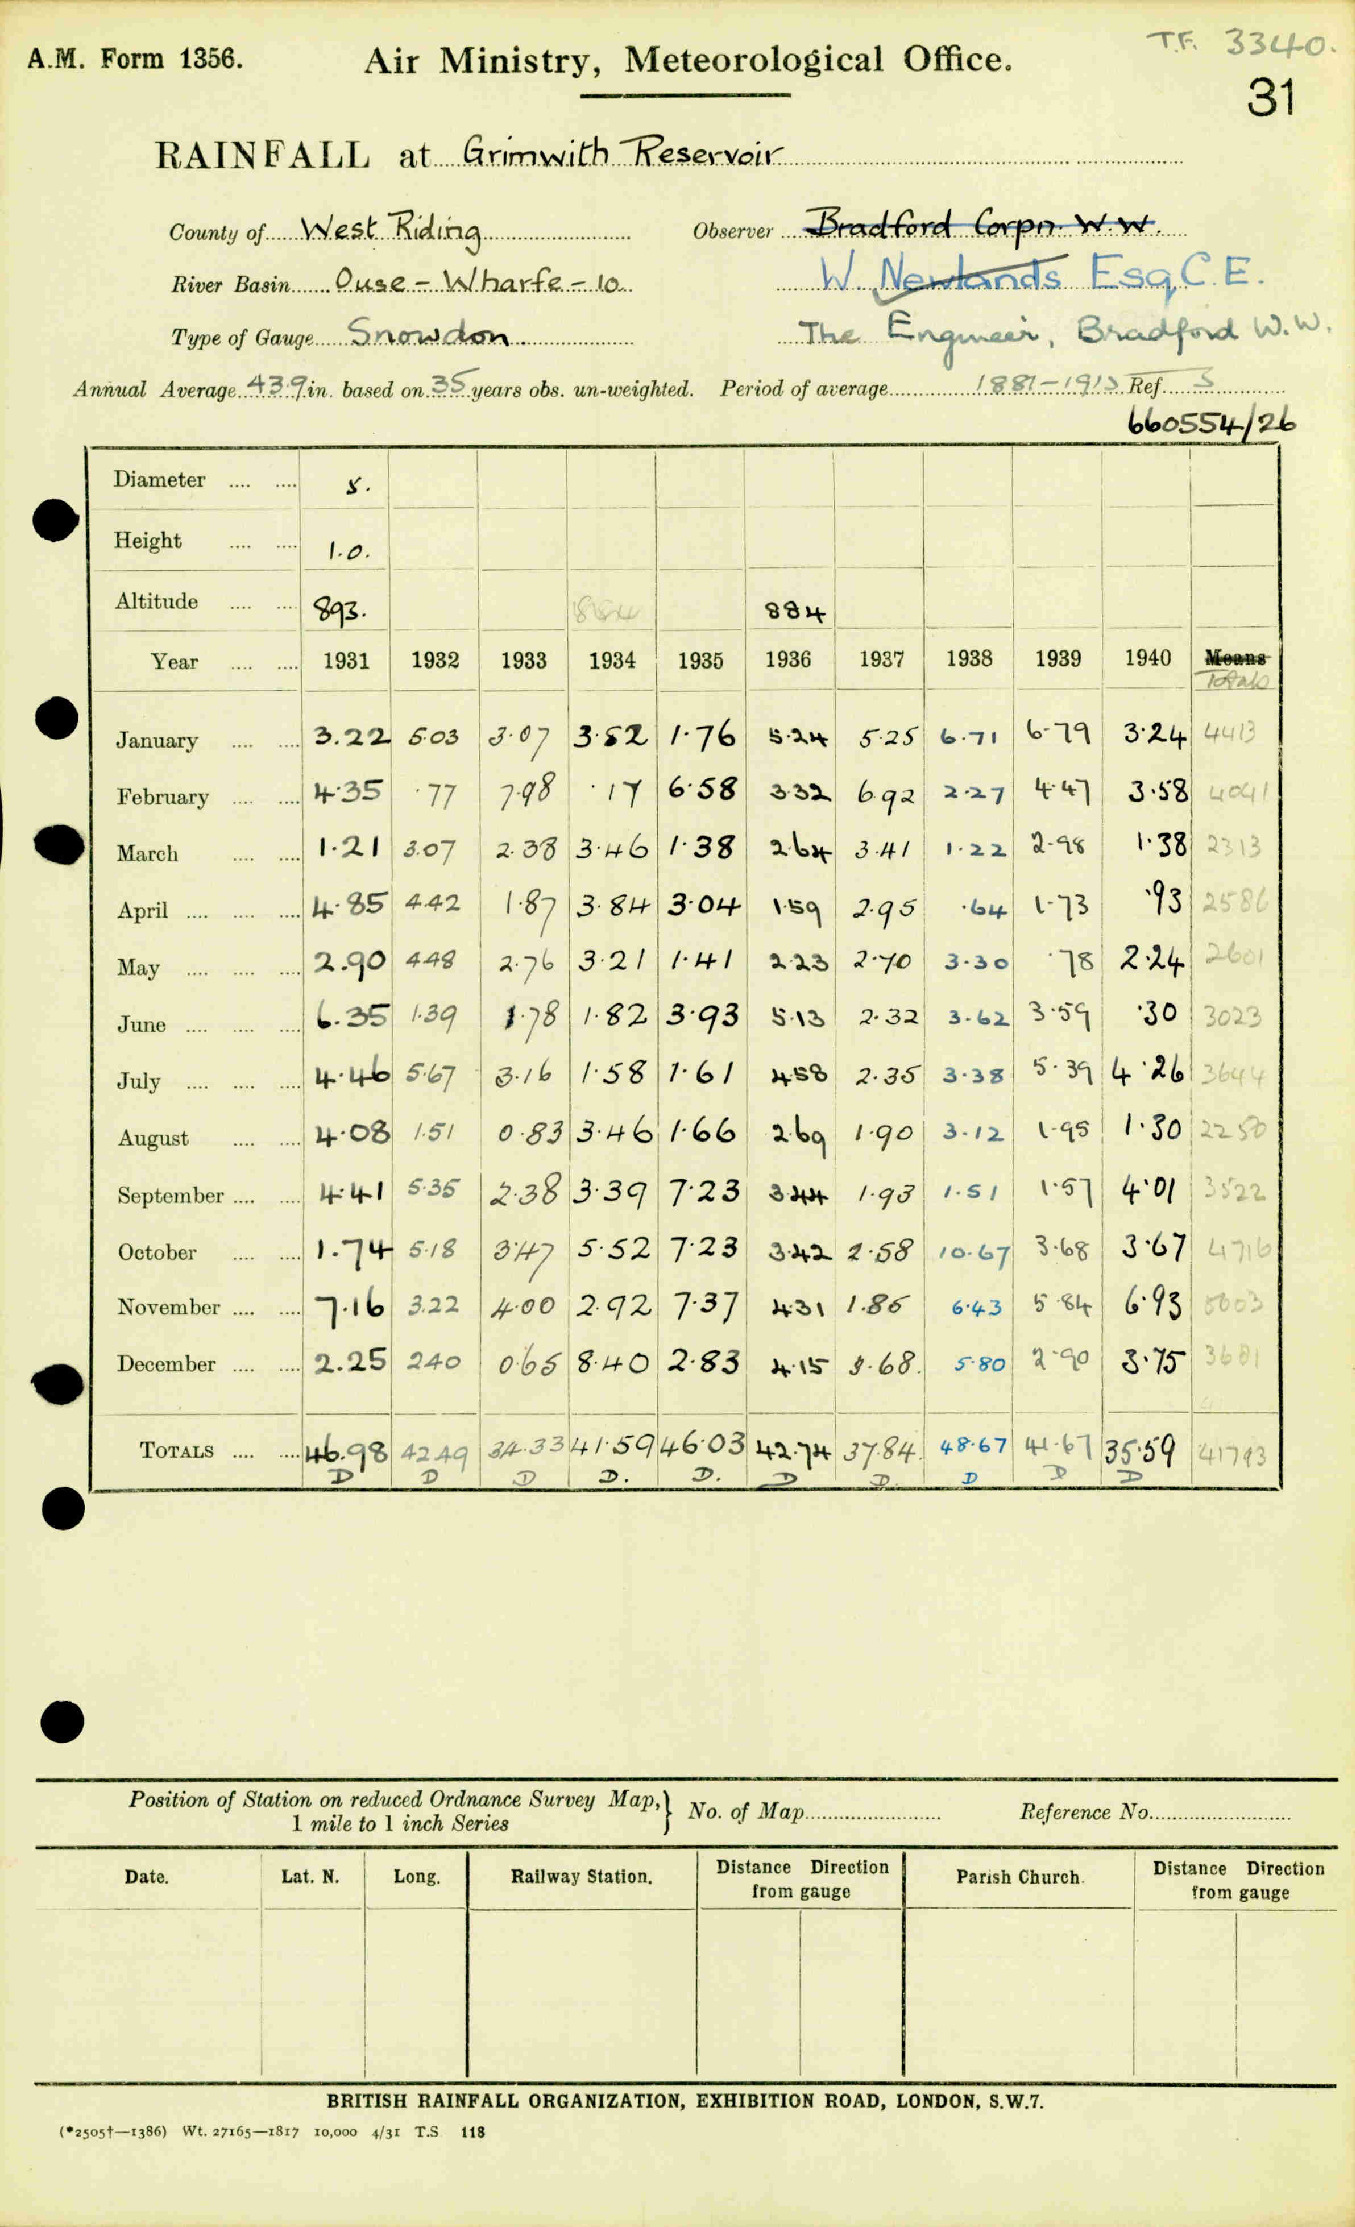 T.F. 3340.
A.M. Form 1356. Air Ministry, Meteorological Office.
31
RAINFALL at Grimwith Reservoir
County of West Riding Observer Bradford Corpn. W.W.
River Basin Ouse - Wharfe - 10 W. Newlands Esq, C.E.
Type of Gauge Snowdon The Engineer, Bradford W.W.
Annual Average 43.9 in. based on 35 years obs. un-weighted. Period of average 1881-1915 Ref. S
660554/26
Diameter .... .... 5.
Height .... .... 1.0.
Altitude .... .... 893. 884 884
Year .... .... 1931 1932 1933 1934 1935 1936 1937 1938 1939 1940 Means
Totals
January .... .... 3.22 5.03 3.07 3.52 1.76 5.24 5.25 6.71 6.79 3.24 4413
February .... .... 4.35 .77 7.98 .17 6.58 3.32 6.92 2.27 4.47 3.58 4041
March .... .... 1.21 3.07 2.38 3.46 1.38 2.64 3.41 1.22 2.98 1.38 2313
April .... .... .... 4.85 4.42 1.87 3.84 3.04 1.59 2.95 .64 1.73 .93 2586
May .... .... .... 2.90 4.48 2.76 3.21 1.41 2.23 2.70 3.30 .78 2.24 2601
June .... .... .... 6.35 1.39 1.78 1.82 3.93 5.13 2.32 3.62 3.59 .30 3023
July .... .... .... 4.46 5.67 3.16 1.58 1.61 4.58 2.35 3.38 5.39 4.26 3644
August .... .... 4.08 1.51 0.83 3.46 1.66 2.69 1.90 3.12 1.95 1.30 2250
September .... .... 4.41 5.35 2.38 3.39 7.23 3.44 1.93 1.51 1.57 4.01 3522
October .... .... 1.74 5.18 3.47 5.52 7.23 3.42 2.58 10.67 3.68 3.67 4716
November .... .... 7.16 3.22 4.00 2.92 7.37 4.31 1.85 6.43 5.84 6.93
December .... .... 2.25 2.40 0.65 8.40 2.83 4.15 3.68. 5.80 2.90 3.75 3681
TOTALS .... .... 46.98 42.49 34.33 41.59 46.03 42.74 37.84. 48.67 41.67 35.59 41793
D D D D. D. D D. D D D
Position of Station on reduced Ordnance Survey Map, } No. of Map Reference No.
1 mile to 1 inch Series
Date. Lat. N. Long. Railway Station. Distance Direction from gauge Parish Church. Distance Direction from gauge
BRITISH RAINFALL ORGANIZATION, EXHIBITION ROAD, LONDON, S.W.7.
(*2505†—1386) Wt. 27165—1817 10,000 4/31 T.S 118